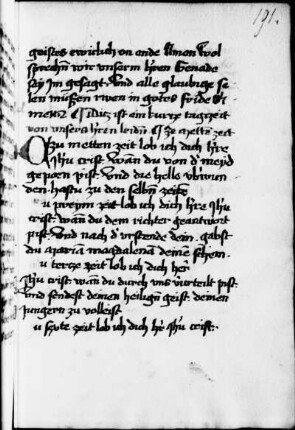 191.
geistes ewiclich on ende Amen Wol
sprechn wir unserm hren Genade
say im gesagt. Und alle glaubige se
len müssen rwen in gotes fride A
men Ditz ist ein kurze tagzeit
von unsers hren leidn Ze mettn zeit
Zu metten zeit lob ich dich hre
ihu crist. wan du von d' meid
geporn pist. Und die helle
den hastu zu den selbn zeite
u preym zeit lob ich dich hre ihu
crist. wan du dem richter geantwort
pist. Und nach d' urstende dein. gabst
du maria magdalena deine schein.
u tercze zeit lob ich dich her
ihu crist. wan du durch uns v'urteilt pist.
Und sendest deinen heilign geist. deinen
jungern zu volleist.
u sexte zeit lob ich dich hr ihu crist.